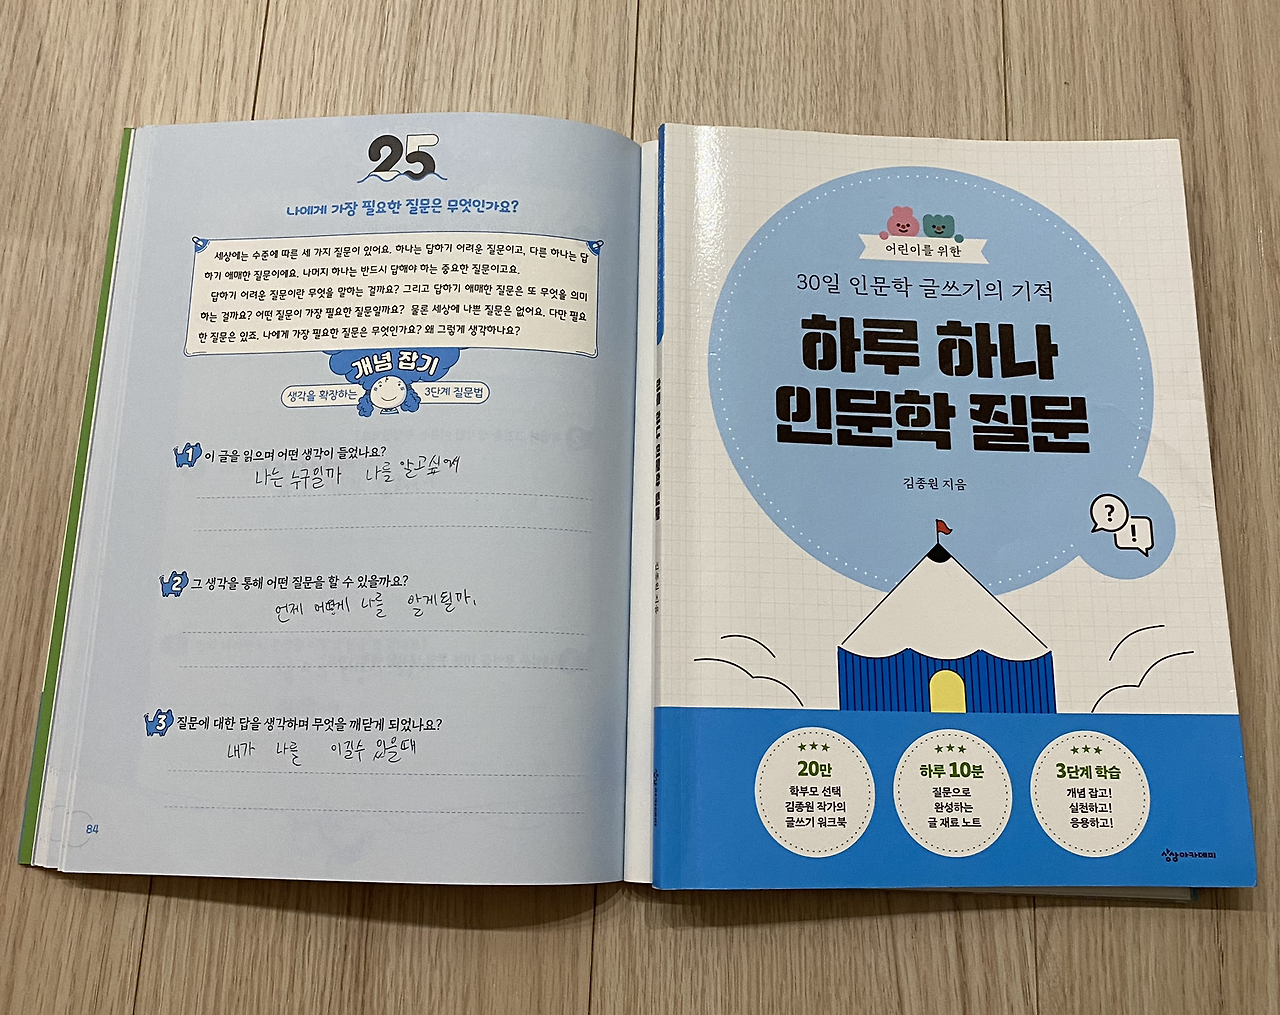 25
나에게 가장 필요한 질문은 무엇인가요?
세상에는 수준에 따른 세 가지 질문이 있어요. 하나는 답하기 어려운 질문이고, 다른 하나는 답
하기 애매한 질문이에요. 나머지 하나는 반드시 답해야 하는 중요한 질문이고요.
답하기 어려운 질문이란 무엇을 말하는 걸까요? 그리고 답하기 애매한 질문은 또 무엇을 의미
하는 걸까요? 어떤 질문이 가장 필요한 질문일까요? 물론 세상에 나쁜 질문은 없어요. 다만 필요
한 질문은 있죠. 나에게 가장 필요한 질문은 무엇인가요? 왜 그렇게 생각하나요?
개념 잡기
생각을 확장하는 3단계 질문법
1 이 글을 읽으며 어떤 생각이 들었나요?
나는 누구일까 나를 알고싶에
2 그 생각을 통해 어떤 질문을 할 수 있을까요?
언제 어떻게 나를 알게될까.
3 질문에 대한 답을 생각하며 무엇을 깨닫게 되었나요?
내가 나를 이길수 있을때
84
어린이를 위한
30일 인문학 글쓰기의 기적
하루 하나
인문학 질문
김종원 지음
?
!
20만
학부모 선택
김종원 작가의
글쓰기 워크북
하루 10분
질문으로
완성하는
글 재료 노트
3단계 학습
개념 잡고!
실천하고!
응용하고!
상상아카데미
하루 하나 인문학 질문
김종원 지음
상상아카데미